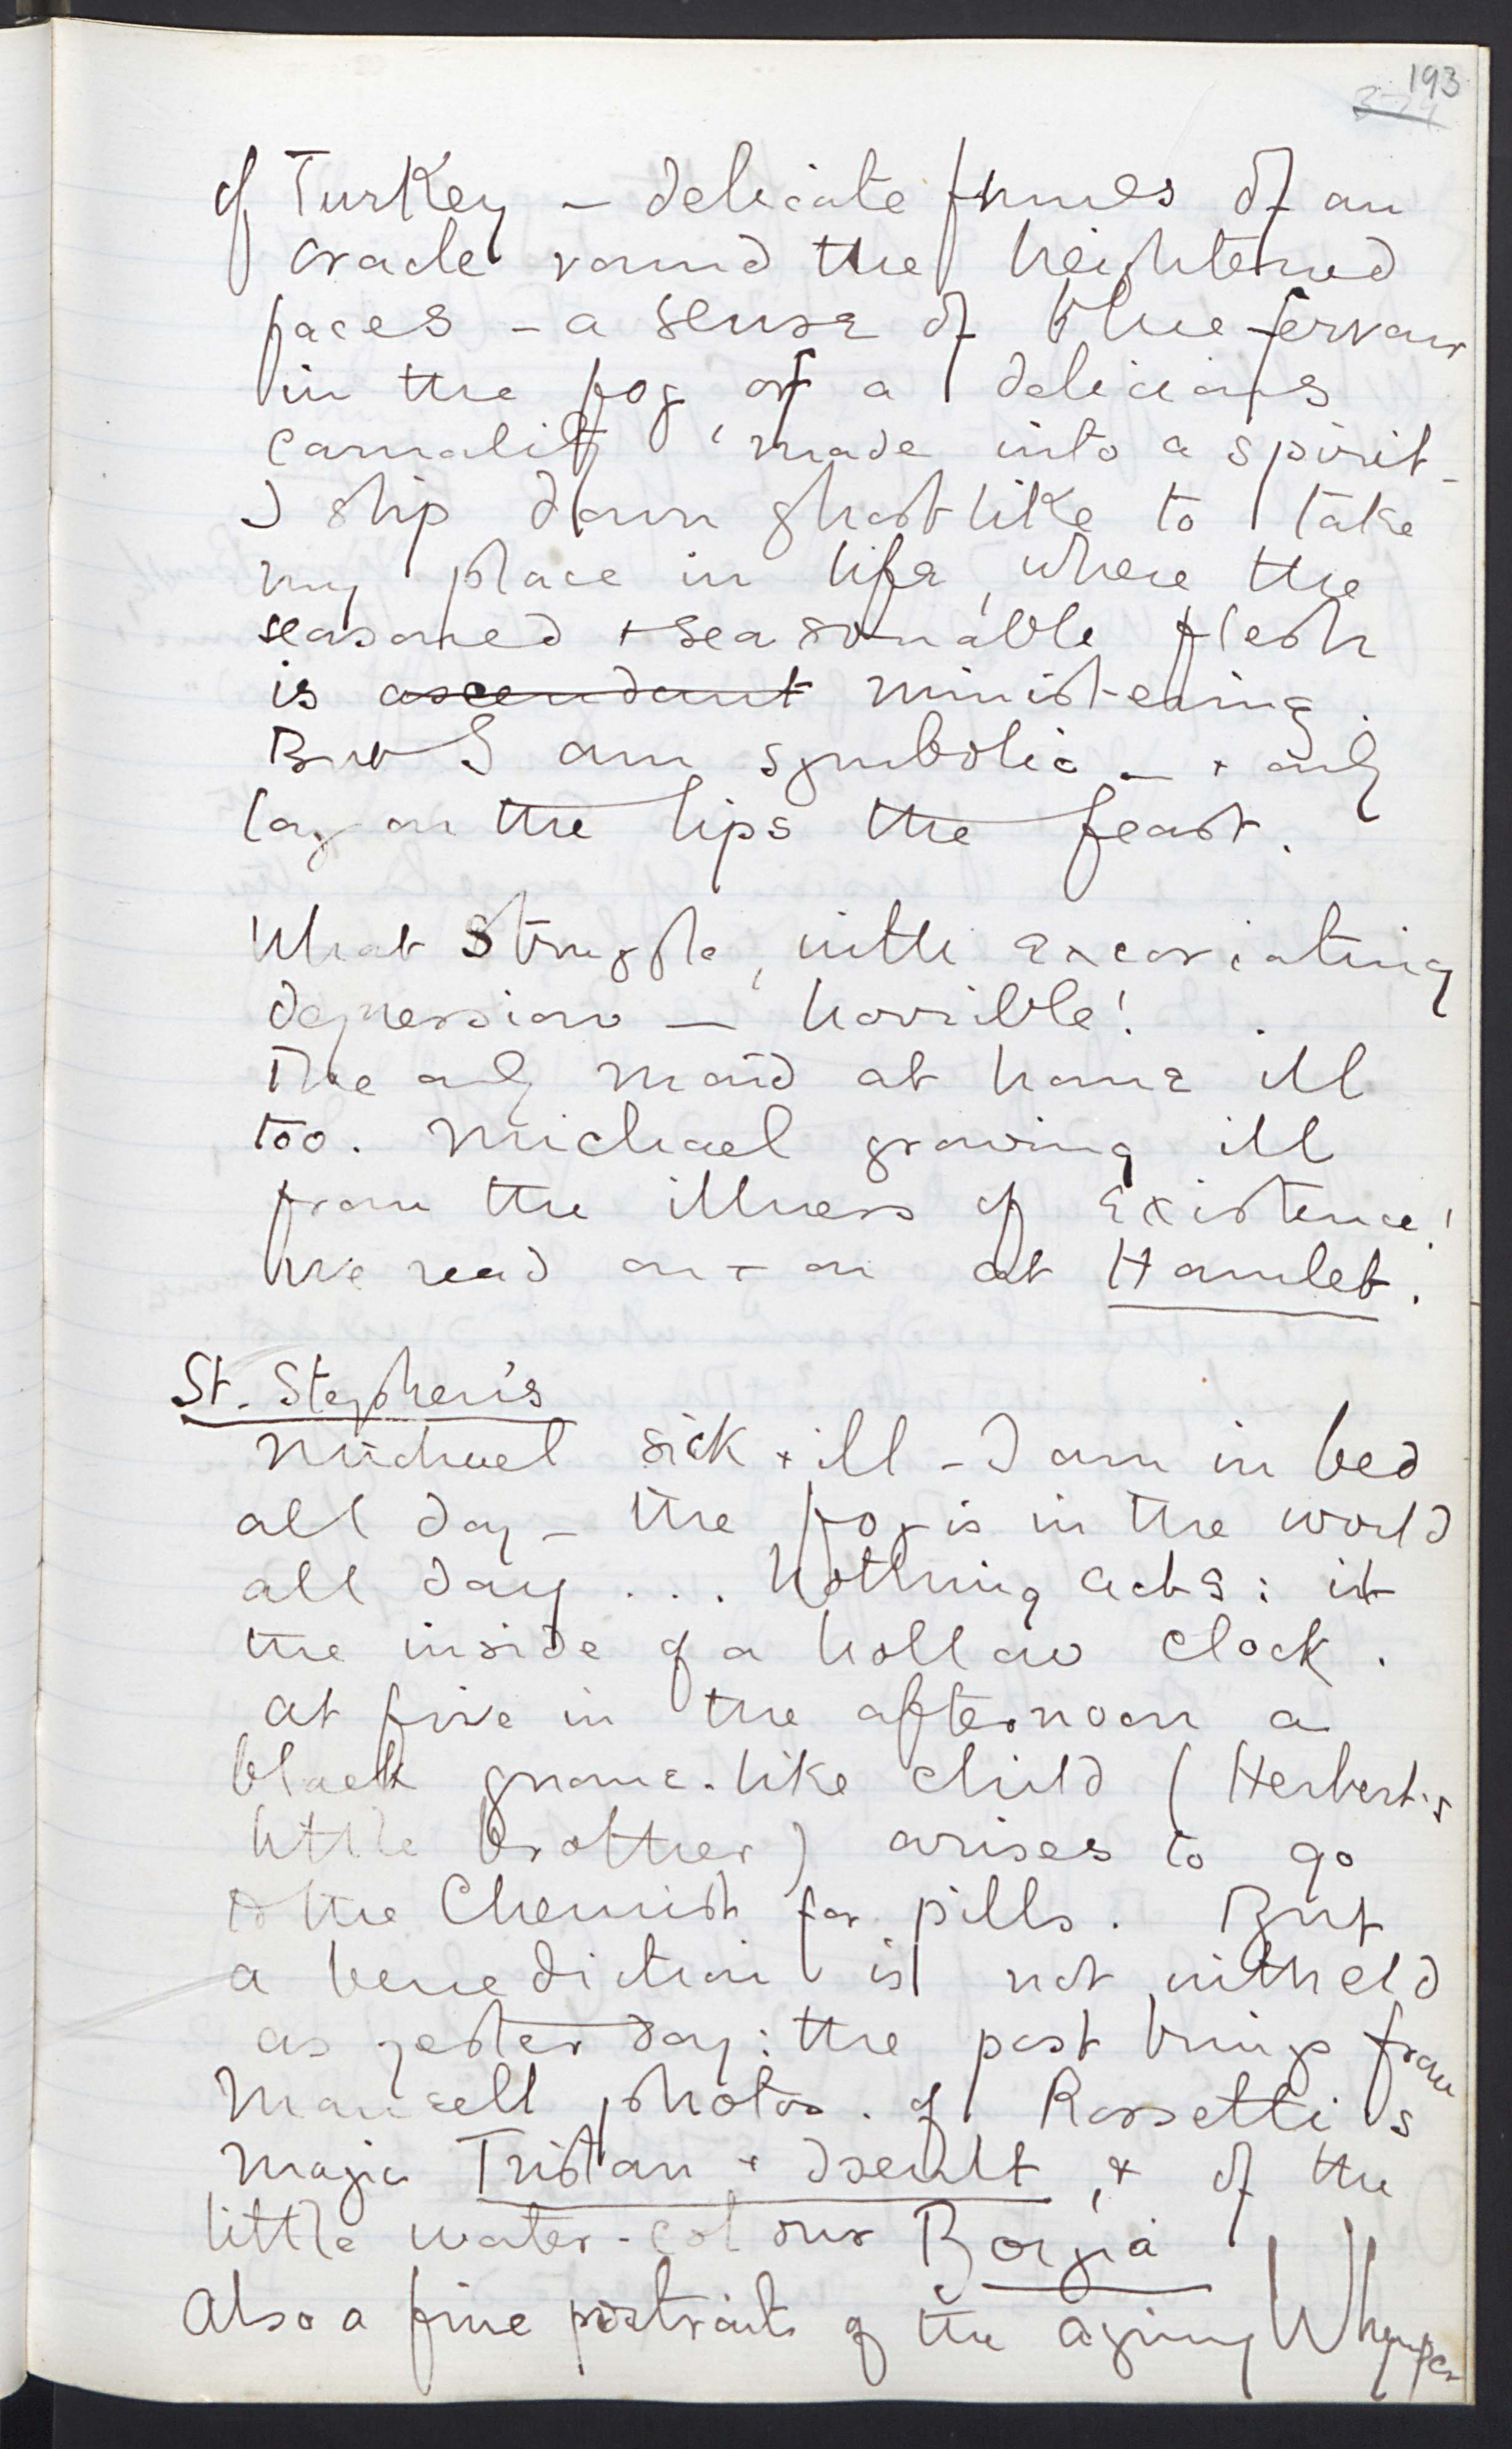 193
of Turkey – delicate fumes of an
oracle round the heightened
faces – a sense of blue fervour
in the fog of a delicious
carnality, made into a spirit –
I slip down ghostlike to take
my place in life, where the
seasoned + seasonable flesh
is ascendant ministering.
But I am symbolic – + only
lay on the lips the feast.
What struggle, with excoriating
depression – horrible!
The only maid at home ill
too. Michael growing ill
from the illness of existence!
We read on + on at Hamlet.
St. Stephen's
Michael sick + ill – I am in bed
all day – the fog is in the world
all day ... Nothing acts: it
the inside of a hollow clock.
At five in the afternoon a
black gnome-like child (Herbert's
little brother) arises to go
to the Chemist for pills. But
a benediction is not witheld
as yesterday: the post brings from
Mansell photos. of Rossetti's
magic Tristan + Iseult, + of the
little water-colour Borgia
Also a fine portrait of the aging Whymper